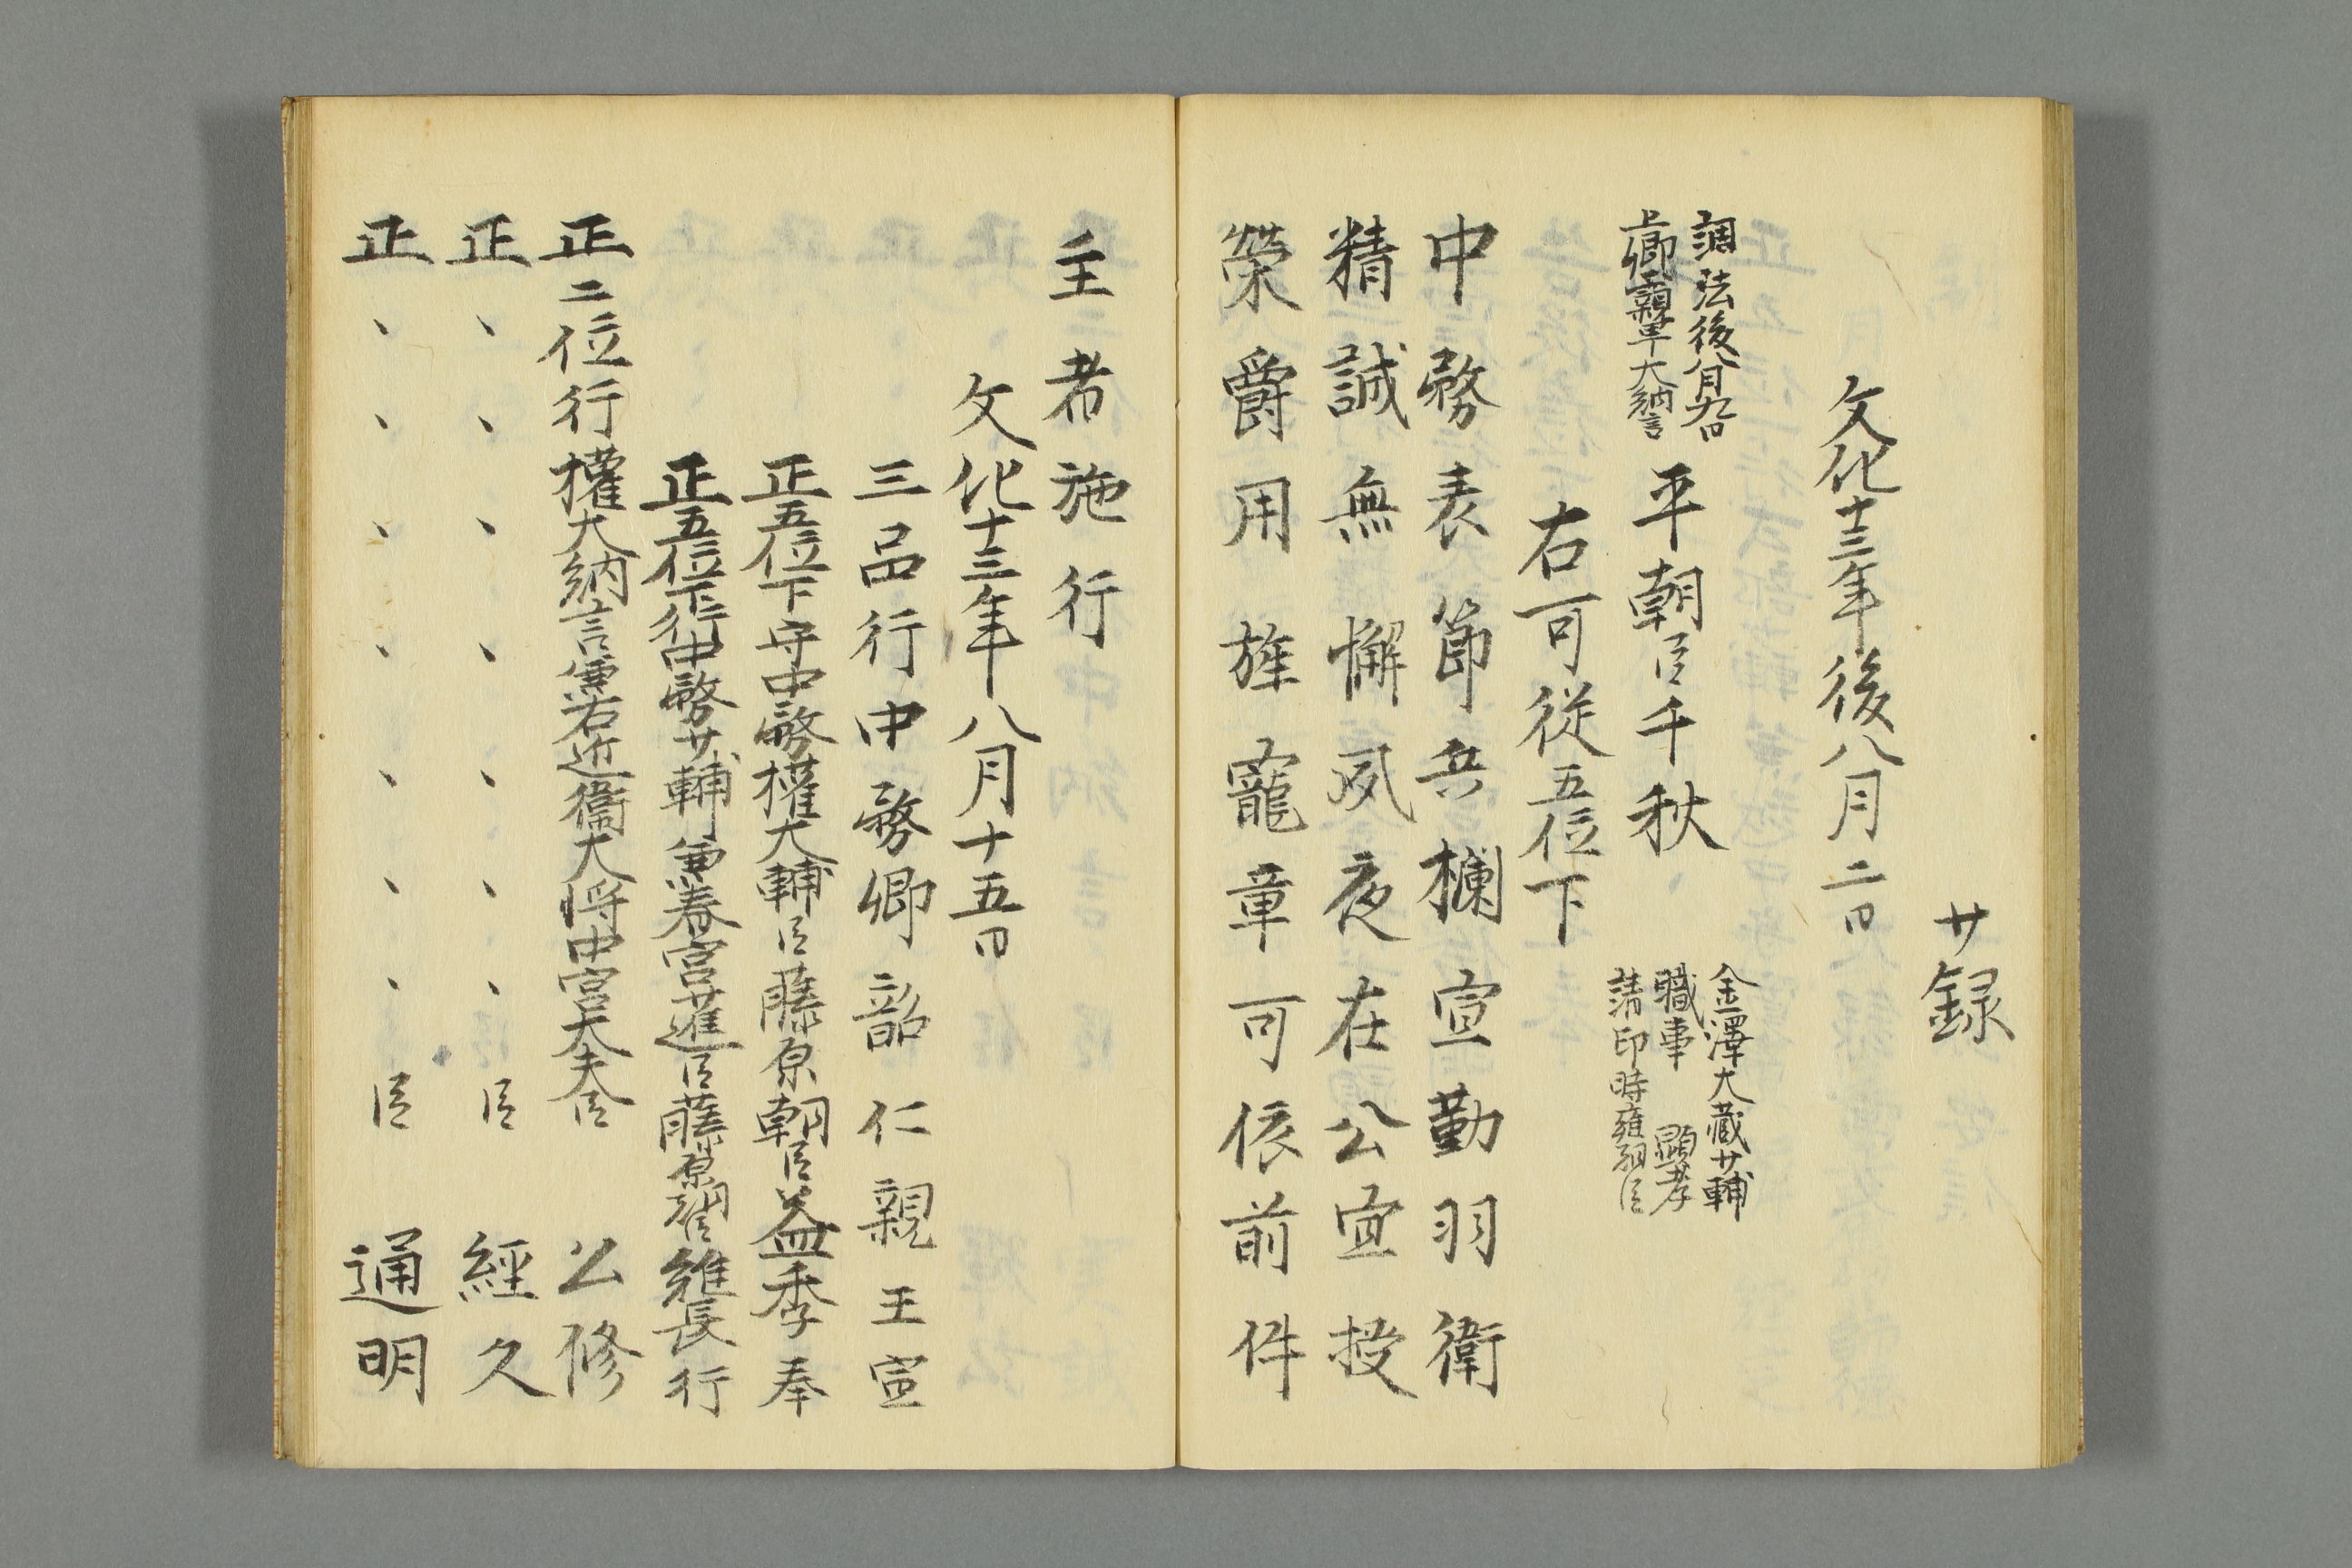 廿録
文化十三年後八月二日
調法後八月九日
上卿
大納言
平朝臣千秋
金澤大蔵廿輔
職事 顕孝
請印時雍朝臣
右可従五位下
中務表節兵欄宣勤羽衛
精誠無懈夙夜在公宜授
榮爵用旌寵章可依前件
主者施行
文化十三年八月十五日
三品行中務卿韶仁親王宣
正五位下守中務權大輔臣藤原朝臣益季奉
正五位下行中務廿輔兼春宮権大進臣藤原朝臣維長行
正二位行權大納言兼右近衞大将中宮大夫臣 公修
正、、、、、、、臣 經久
正、、、、、、、臣 通明